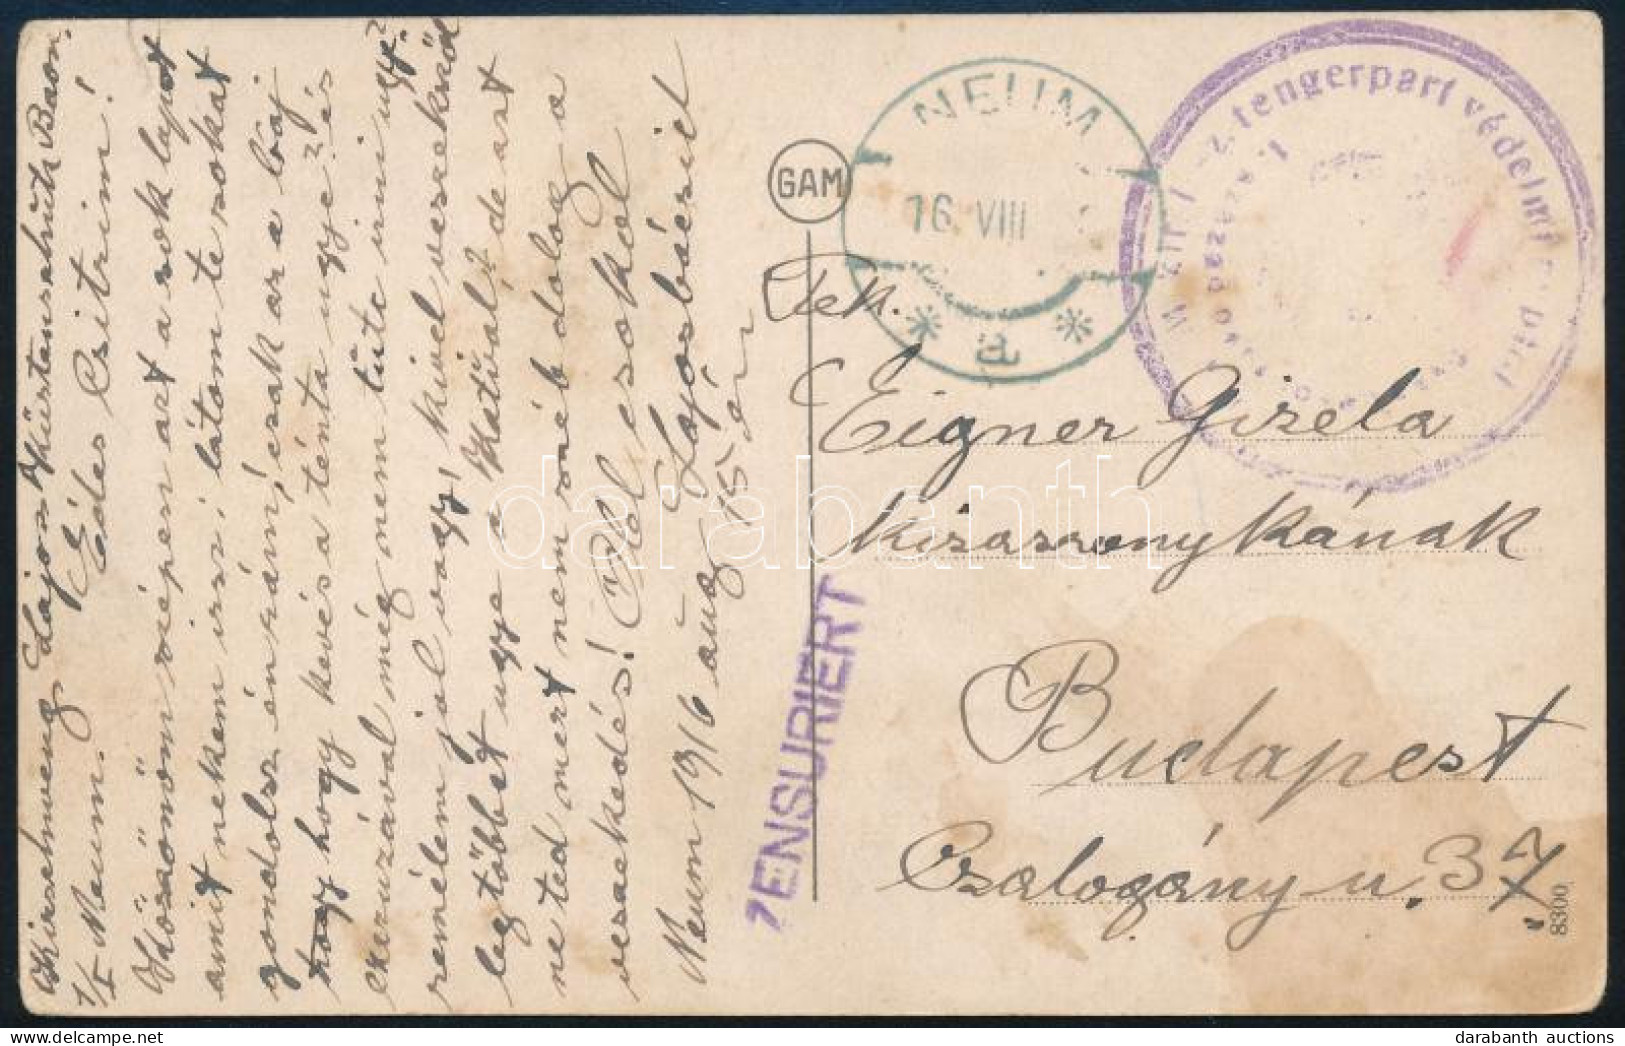 Kirschweng Lajos Küstenschutz Baon.
1/I Neum. Édes Csitrim!
Köszönöm szépen azt a sok lapot
amit nekem irsz, látom te sokat
gondolsz én reám, csak az a baj
hogy hogy kevés a ténta ugye? és
a cerzúzával még nem tütc irni ugy?
remélem jol vagy, kivel veszekedöl
legtöbbet ugye a Katival? de azt
ne ted mert nem szép dolog a
veszekedés! Ölel csokol
Lajosbácsit
Neum 1916 aug 15 én
GAM
NEUM
16. VIII
* a *
tengerpart védelmi
1. század
ZENSURIERT
Tek.
Eigner Gizela
kisasszonykának
Budapest
Csalogány u. 37
8300
darabanth
darabanth auctions